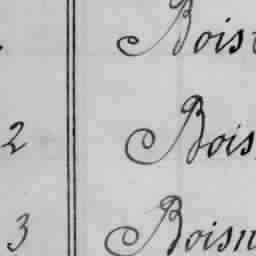 Boist
2 Bois
3 Boisn